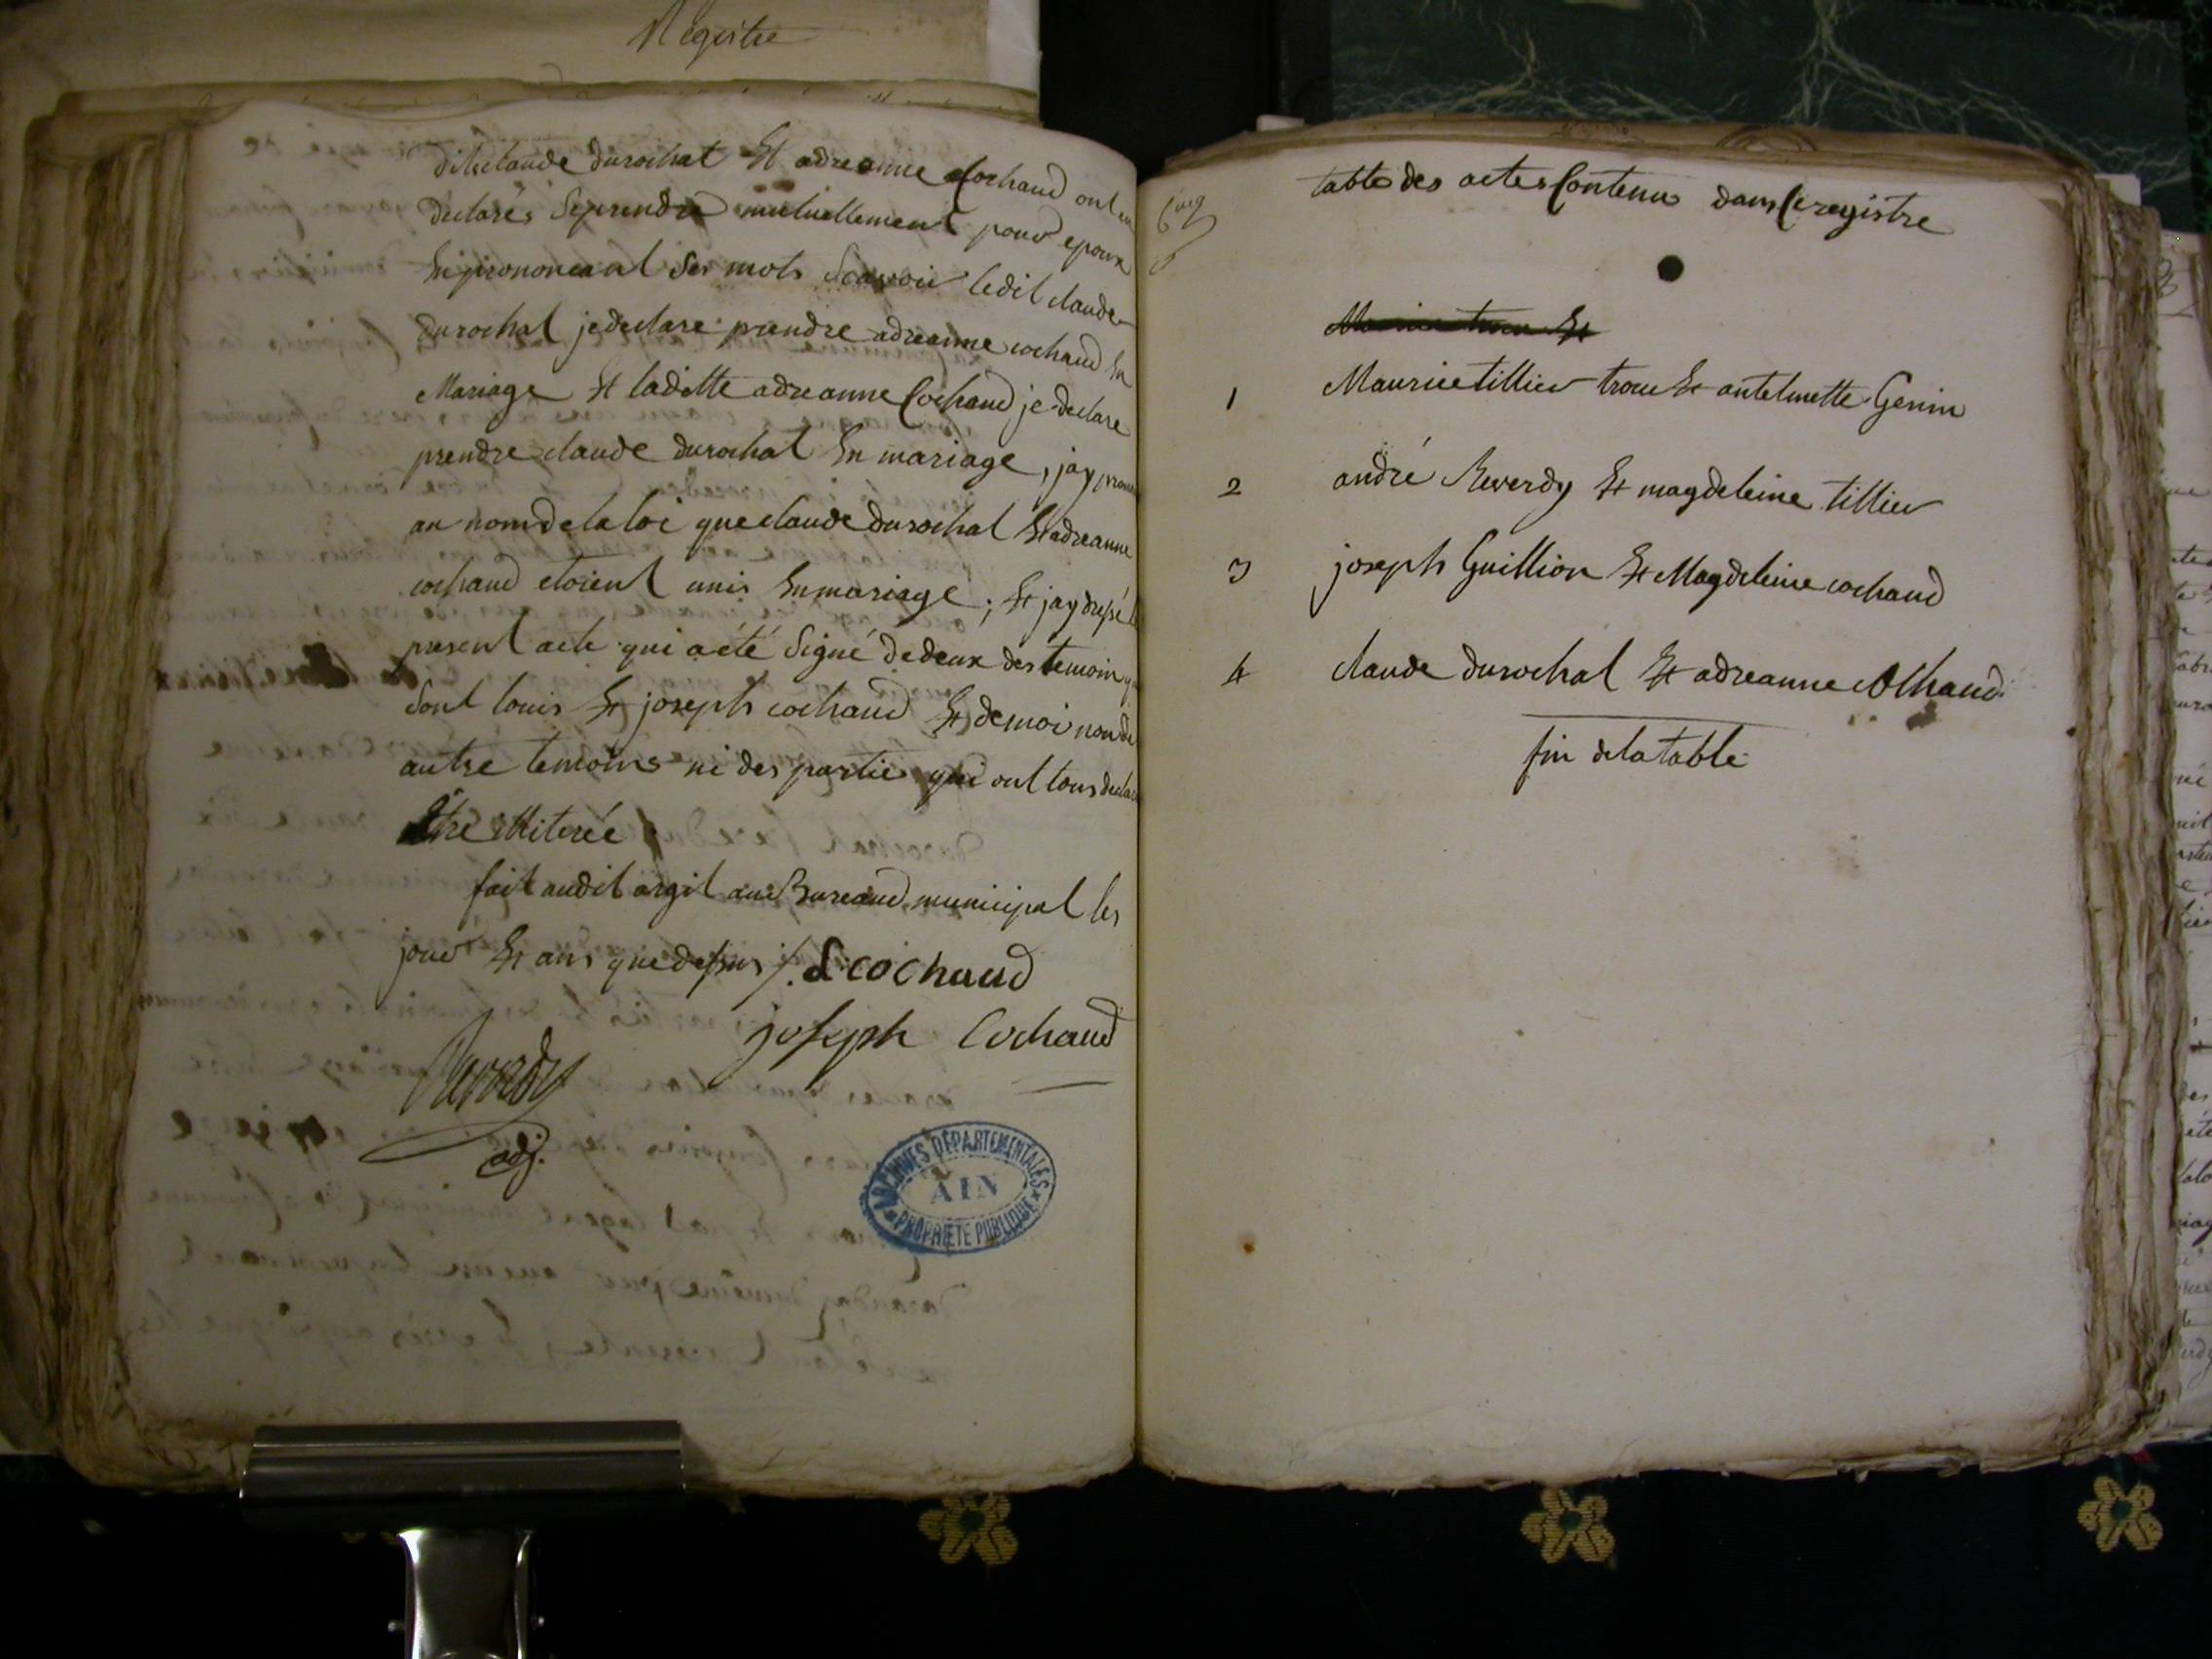 Registre
dits claude durochat Et adreanne Cochaud ont
declarés Se prendre mutuellement pour epoux
En prononcant Ses mots Scavoir ledit claude
durochat je declare prendre adreanne cochaud En
Mariage Et laditte adreanne Cochaud je declare
prendre claude durochat En mariage, jay
au nom de la loi que claude durochat Et adreanne
cochaud etoient unis En mariage; Et jay dressé
present acte qui a été Signé de deux des temoin
Sont louis Et joseph cochaud Et de moi non de
autre temoins ni des partie qui ont tous
Etre illiterée
fait audit argit au Bureaud municipal les
jour Et ans que dessus /. L cochaud
joseph Cochaud
Reverdy
adj.
ARCHIVES DÉPARTEMENTALES
AIN
PROPRIÉTÉ PUBLIQUE
table des actes Contenu dans Ce registre
1 Maurice tillier trocu Et antelmette Genin
2 andré Reverdy Et magdeleine tillier
3 joseph Guillion Et Magdeleine cochaud
4 claude durochat Et adreanne Cochaud
fin de la table